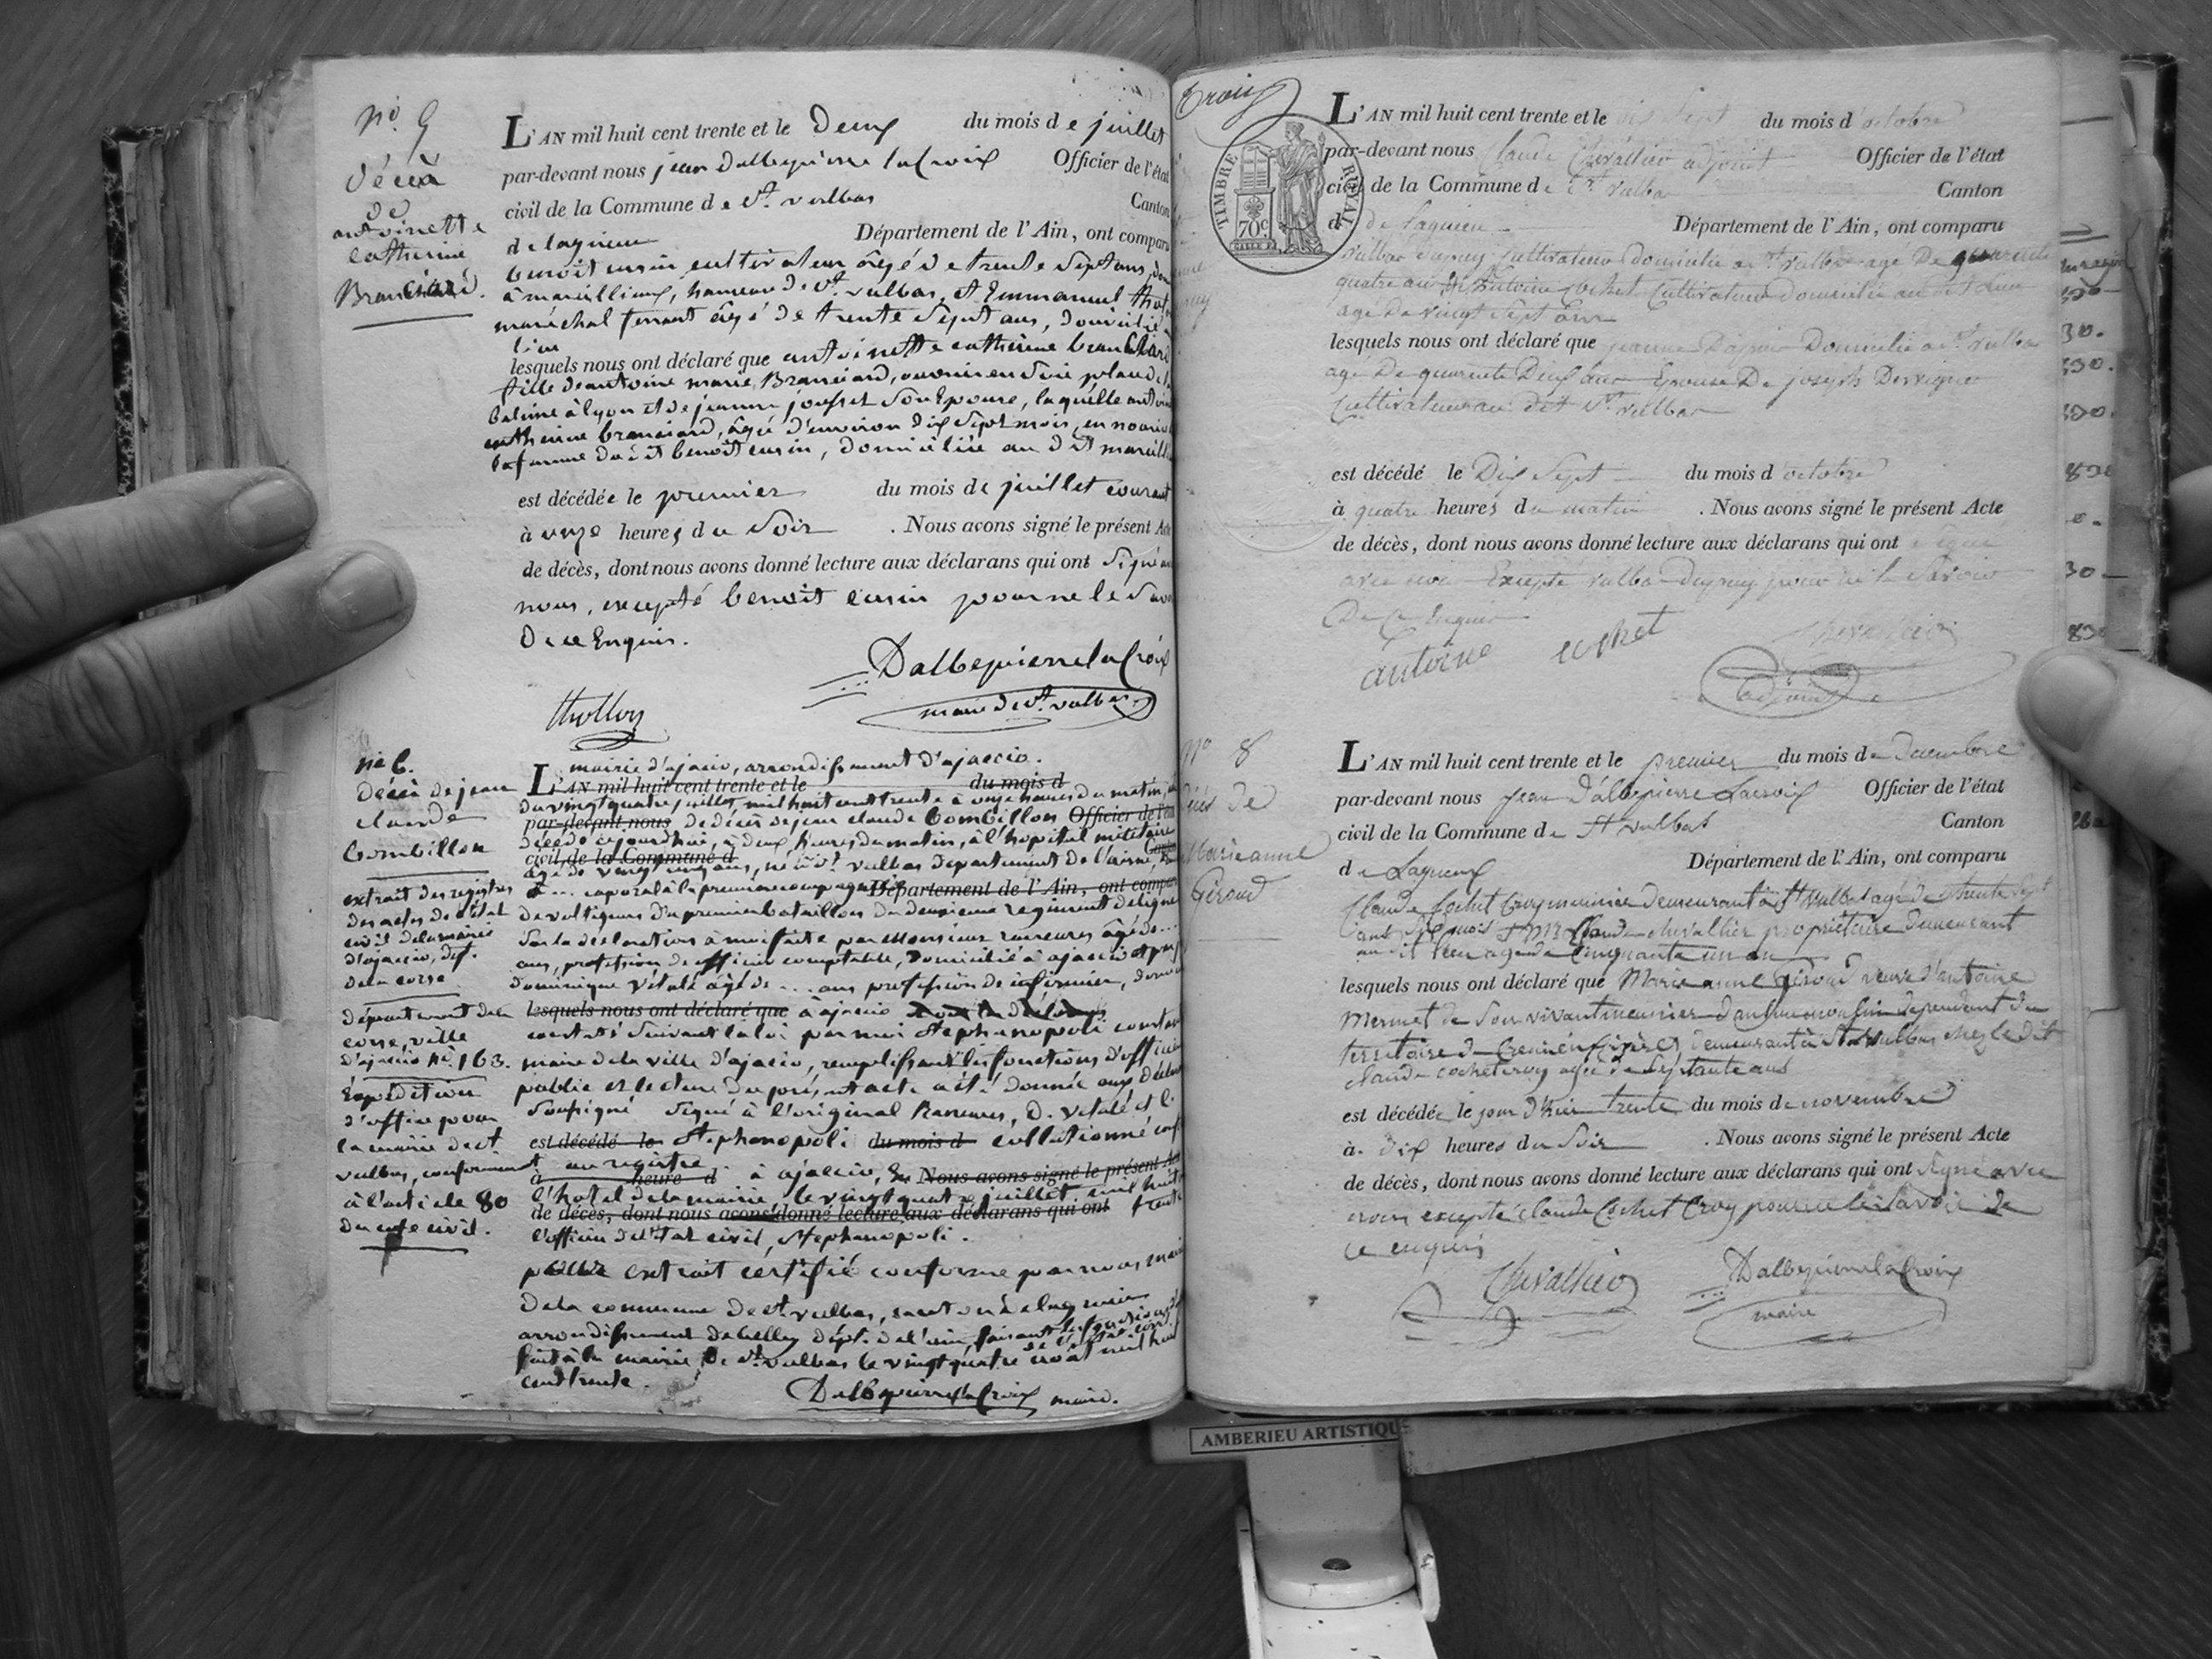 no. 5
décès
de
antoinette
catherine
Branciard.
L'AN mil huit cent trente et le Deux du mois de juillet
par-devant nous jean Dalbepierre lacroix Officier de l'état
civil de la Commune de St. vulbas Canton
de lagnieu Département de l'Ain, ont comparu
benoît cusin cultivateur âgé de trente sept ans,
à marcillieux, hameau de St. vulbas, et Emmanuel
maréchal ferrant âgé de trente sept ans, domicilié
lieu
lesquels nous ont déclaré que antoinette catherine branciard
fille de antoine marie Branciard, ouvrier en Soie place de la
baleine à lyon et de jeanne Son Epouse, laquelle
catherine branciard, âgée d'environ dix Sept mois, en nourrice
la femme du dit benoît cusin, domiciliée au dit
est décédée le premier du mois de juillet courant
à onze heures du Soir . Nous avons signé le présent Acte
de décès, dont nous avons donné lecture aux déclarans qui ont Signé
nous, excepté benoît cusin pour ne le
De ce Enquis.
Dalbepierre lacroix
maire de St. vulbas
thollon
no. 6.
Décès de jean
claude
bombillon
extrait des registres
des actes de l'état
civil de la mairie
d'ajaccio, dép.
de la corse
département de la
corse, ville
d'ajaccio No. 163.
Expédition
d'office pour
la mairie de St
vulbas, conformément
à l'article 80
du code civil.
mairie d'ajaccio, arrondissement d'ajaccio.
L'AN mil huit cent trente et le du mois d
du vingt quatre juillet, mil huit cent trente à onze heures du matin,
par-devant nous de décès de jean claude bombillon Officier de l'état
décédé cejourd'hui, à deux heures du matin, à l'hopital militaire
civil de la Commune d
âgé de vingt cinq ans, né à St. vulbas département de l'aisne,
d caporal à la première compagnie Département de l'Ain, ont comparu
de voltigeurs du premier bataillon du deuxieme régiment de ligne
Sur la déclaration à moi faite par Monsieur âgé de ...
ans, profession de officier comptable, domicilié à ajaccio et par
dominique vitalé âgé de ... ans profession de infirmier,
lesquels nous ont déclaré que à ajaccio
constaté Suivant la loi par moi Stephanopoli
maire de la ville d'ajaccio, remplissant les fonctions d'officier
public et lecture du présent acte a été donnée aux
Soussigné Signé à l'original D. vitalé et C.
est décédé le Stephanopoli du mois d collationné
au registre
à heure d à ajaccio, Nous avons signé le présent Acte
l'hotel de la mairie, le vingt quatre juillet mil huit
de décès, dont nous avons donné lecture aux déclarans qui ont trente
l'officier de l'état civil, Stephanopoli.
pour extrait certifié conforme par nous maire
de la commune de St vulbas, canton de lagnieu
arrondissement de belley dépt. de l'ain, faisant les fonctions
fait à la mairie de St. vulbas le vingt quatre août mil huit
cent trente.
Dalbepierre lacroix maire.
Trois
TIMBRE ROYAL
70c
L'AN mil huit cent trente et le dix Sept du mois d'octobre
par-devant nous Claude Chevallier adjoint Officier de l'état
civil de la Commune de St vulbas Canton
d de Lagnieu Département de l'Ain, ont comparu
vulbas dupuy cultivateur domicilié a St vulbas age De quarente
quatre ans et Antoine Cochet Cultivateur domicilié au dit lieu
age de vingt Sept ans
lesquels nous ont déclaré que jeanne Domicilié a St vulbas
age De quarente Deux ans Epouse De joseph
Cultivateur au dit St. vulbas
est décédé le Dix Sept du mois d'octobre
à quatre heures du matin . Nous avons signé le présent Acte
de décès, dont nous avons donné lecture aux déclarans qui ont signé
avec nous Excepté vulbas dupuy pour ne le Savoir
De Ce Enquis
antoine cochet
Chevallier
adjoint
No 8
décès de
Marieanne
Giroud
L'AN mil huit cent trente et le premier du mois de Decembre
par-devant nous Jean D'albepierre Lacroix Officier de l'état
civil de la Commune de St vulbas Canton
de Lagnieux Département de l'Ain, ont comparu
Claude Cochet Croy meunier demeurant à St vulbas agé de trente Sept
ans Six mois et Mr Claude chevallier propriétaire demeurant
au dit lieu agé de Cinquante un an
lesquels nous ont déclaré que Marie anne Giroud veuve d'antoine
Mermet de Son vivant meunier dans un moulin dependant du
territoire de demeurant à St Vulbas chez le dit
claude cochet croy agée de Septante ans
est décédée le jour d'hier trente du mois de novembre
à Dix heures du Soir . Nous avons signé le présent Acte
de décès, dont nous avons donné lecture aux déclarans qui ont signé avec
nous excepté Claude Cochet Croy pour ne le Savoir de
ce enquis
Chevallier
Dalbepierre lacroix
maire
AMBERIEU ARTISTIQUE